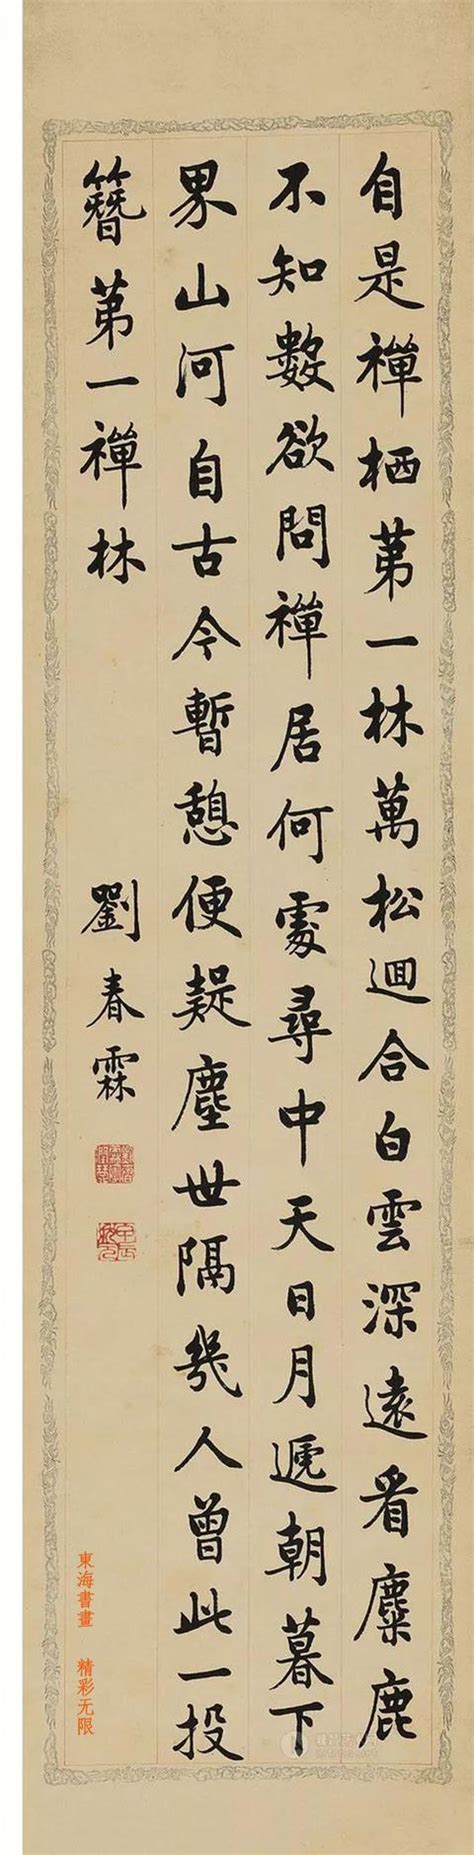 自是禪栖苐一林萬松迴合白雲深遠看麋鹿
不知數欲問禪居何處尋中天日月遞朝暮下
界山河自古今暫憩便疑塵世隔幾人曾此一投
簪苐一禪林
劉春霖
東海書畫 精彩无限